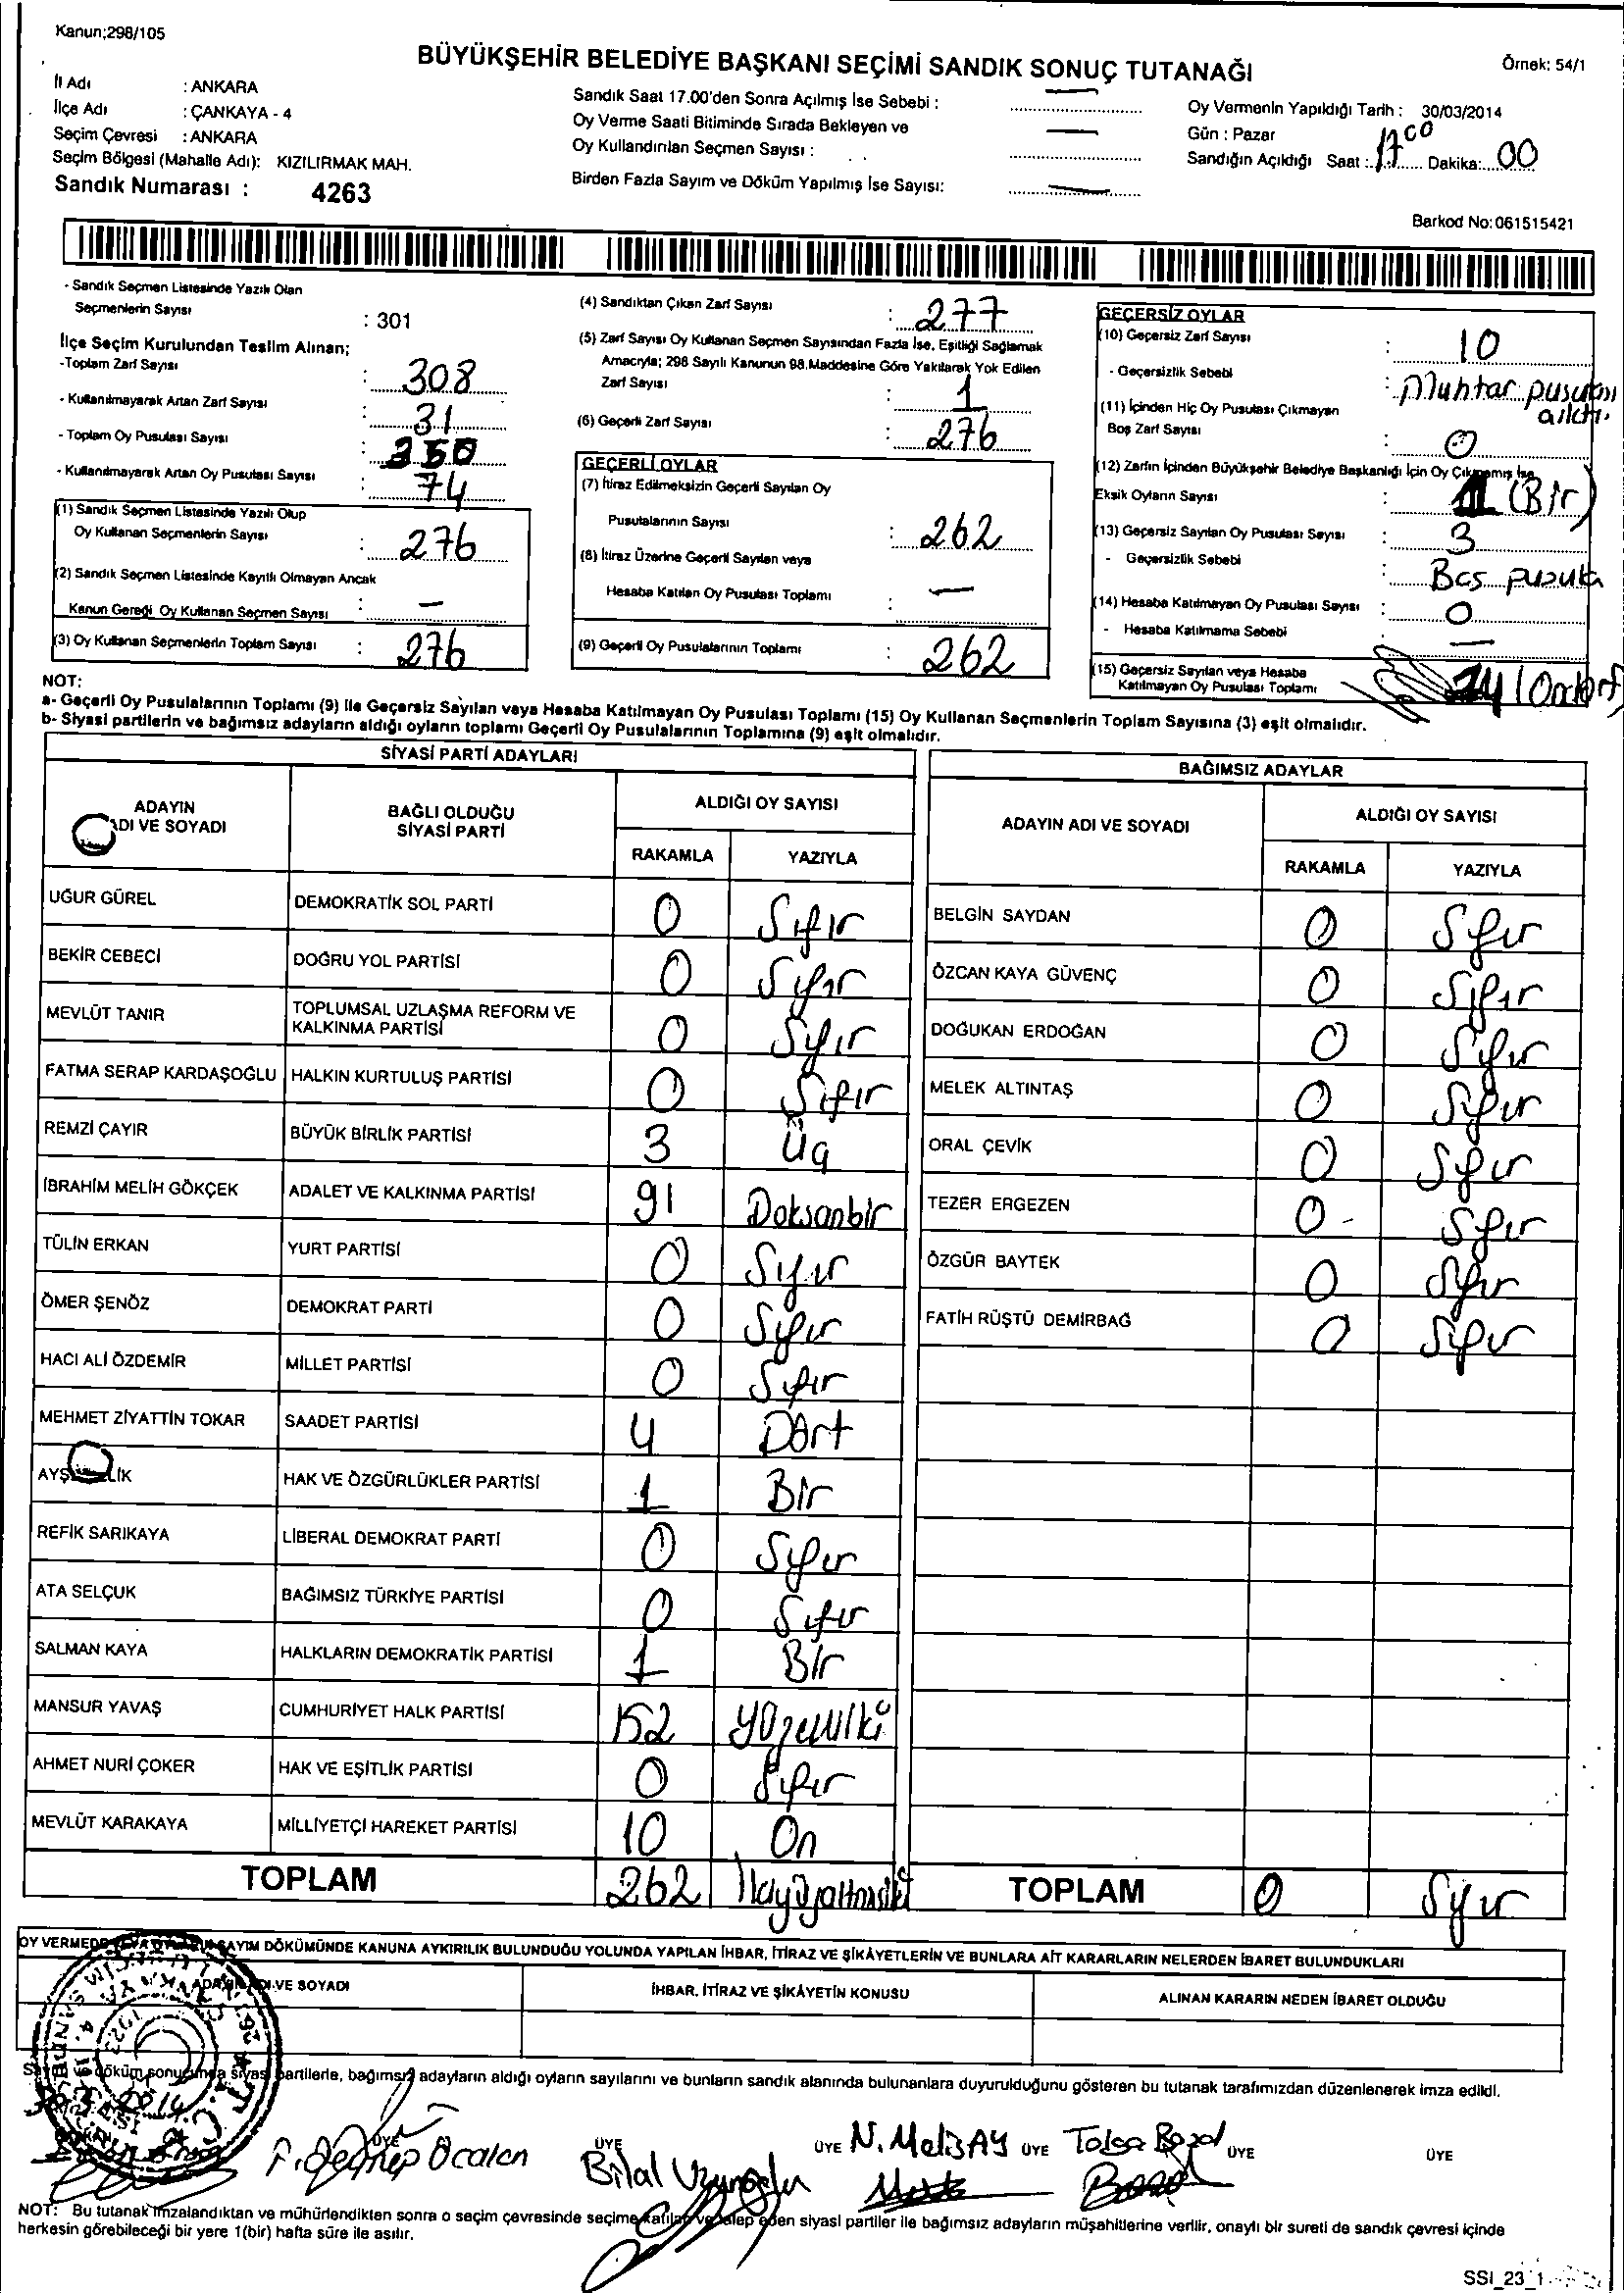 Kanun;298/105
BÜYÜKŞEHİR BELEDİYE BAŞKANI SEÇİMİ SANDIK SONUÇ TUTANAĞI
Örnek: 54/1
İl Adı : ANKARA
İlçe Adı : ÇANKAYA - 4
Seçim Çevresi : ANKARA
Seçim Bölgesi (Mahalle Adı): KIZILIRMAK MAH.
Sandık Numarası : 4263
Sandık Saat 17.00'den Sonra Açılmış İse Sebebi : —
Oy Verme Saati Bitiminde Sırada Bekleyen ve
Oy Kullandırılan Seçmen Sayısı : —
Birden Fazla Sayım ve Döküm Yapılmış İse Sayısı: —
Oy Vermenin Yapıldığı Tarih : 30/03/2014
Gün : Pazar
Sandığın Açıldığı Saat : 17 00 Dakika: 00
Barkod No: 061515421
- Sandık Seçmen Listesinde Yazılı Olan
Seçmenlerin Sayısı : 301
İlçe Seçim Kurulundan Teslim Alınan;
-Toplam Zarf Sayısı : 308
- Kullanılmayarak Artan Zarf Sayısı : 31
- Toplam Oy Pusulası Sayısı : 350
- Kullanılmayarak Artan Oy Pusulası Sayısı : 74
(1) Sandık Seçmen Listesinde Yazılı Olup
Oy Kullanan Seçmenlerin Sayısı : 276
(2) Sandık Seçmen Listesinde Kayıtlı Olmayan Ancak
Kanun Gereği Oy Kullanan Seçmen Sayısı : —
(3) Oy Kullanan Seçmenlerin Toplam Sayısı : 276
(4) Sandıktan Çıkan Zarf Sayısı : 277
(5) Zarf Sayısı Oy Kullanan Seçmen Sayısından Fazla İse, Eşitliği Sağlamak
Amacıyla; 298 Sayılı Kanunun 98.Maddesine Göre Yakılarak Yok Edilen
Zarf Sayısı : 1
(6) Geçerli Zarf Sayısı : 276
GEÇERLİ OYLAR
(7) İtiraz Edilmeksizin Geçerli Sayılan Oy
Pusulalarının Sayısı : 262
(8) İtiraz Üzerine Geçerli Sayılan veya
Hesaba Katılan Oy Pusulası Toplamı : —
(9) Geçerli Oy Pusulalarının Toplamı : 262
GEÇERSİZ OYLAR
(10) Geçersiz Zarf Sayısı : 10
- Geçersizlik Sebebi : Muhtar pusulası
(11) İçinden Hiç Oy Pusulası Çıkmayan
Boş Zarf Sayısı : 0
(12) Zarfın İçinden Büyükşehir Belediye Başkanlığı İçin Oy Çıkmamış İse
Eksik Oyların Sayısı : 1 (Bir)
(13) Geçersiz Sayılan Oy Pusulası Sayısı : 3
- Geçersizlik Sebebi : Boş pusula
(14) Hesaba Katılmayan Oy Pusulası Sayısı : 0
- Hesaba Katılmama Sebebi : —
(15) Geçersiz Sayılan veya Hesaba
Katılmayan Oy Pusulası Toplamı 14 (Ondört
NOT:
a- Geçerli Oy Pusulalarının Toplamı (9) ile Geçersiz Sayılan veya Hesaba Katılmayan Oy Pusulası Toplamı (15) Oy Kullanan Seçmenlerin Toplam Sayısına (3) eşit olmalıdır.
b- Siyasi partilerin ve bağımsız adayların aldığı oyların toplamı Geçerli Oy Pusulalarının Toplamına (9) eşit olmalıdır.
SİYASİ PARTİ ADAYLARI
BAĞIMSIZ ADAYLAR
ADAYIN ADI VE SOYADI
BAĞLI OLDUĞU SİYASİ PARTİ
ALDIĞI OY SAYISI
RAKAMLA YAZIYLA
ADAYIN ADI VE SOYADI
ALDIĞI OY SAYISI
RAKAMLA YAZIYLA
UĞUR GÜREL DEMOKRATİK SOL PARTİ 0 Sıfır
BELGİN SAYDAN 0 Sıfır
BEKİR CEBECİ DOĞRU YOL PARTİSİ 0 Sıfır
ÖZCAN KAYA GÜVENÇ 0 Sıfır
MEVLÜT TANIR TOPLUMSAL UZLAŞMA REFORM VE KALKINMA PARTİSİ 0 Sıfır
DOĞUKAN ERDOĞAN 0 Sıfır
FATMA SERAP KARDAŞOĞLU HALKIN KURTULUŞ PARTİSİ 0 Sıfır
MELEK ALTINTAŞ 0 Sıfır
REMZİ ÇAYIR BÜYÜK BİRLİK PARTİSİ 3 Üç
ORAL ÇEVİK 0 Sıfır
İBRAHİM MELİH GÖKÇEK ADALET VE KALKINMA PARTİSİ 91 Doksanbir
TEZER ERGEZEN 0 Sıfır
TÜLİN ERKAN YURT PARTİSİ 0 Sıfır
ÖZGÜR BAYTEK 0 Sıfır
ÖMER ŞENÖZ DEMOKRAT PARTİ 0 Sıfır
FATİH RÜŞTÜ DEMİRBAĞ 0 Sıfır
HACI ALİ ÖZDEMİR MİLLET PARTİSİ 0 Sıfır
MEHMET ZİYATTİN TOKAR SAADET PARTİSİ 4 Dört
HAK VE ÖZGÜRLÜKLER PARTİSİ 1 Bir
REFİK SARIKAYA LİBERAL DEMOKRAT PARTİ 0 Sıfır
ATA SELÇUK BAĞIMSIZ TÜRKİYE PARTİSİ 0 Sıfır
SALMAN KAYA HALKLARIN DEMOKRATİK PARTİSİ 1 Bir
MANSUR YAVAŞ CUMHURİYET HALK PARTİSİ 152 Yüzelliiki
AHMET NURİ ÇOKER HAK VE EŞİTLİK PARTİSİ 0 Sıfır
MEVLÜT KARAKAYA MİLLİYETÇİ HAREKET PARTİSİ 10 On
TOPLAM 262 İkiyüzaltmışiki TOPLAM 0 Sıfır
SAYIM DÖKÜMÜNDE KANUNA AYKIRILIK BULUNDUĞU YOLUNDA YAPILAN İHBAR, İTİRAZ VE ŞİKÂYETLERİN VE BUNLARA AİT KARARLARIN NELERDEN İBARET BULUNDUKLARI
ADAYIN ADI VE SOYADI İHBAR, İTİRAZ VE ŞİKÂYETİN KONUSU ALINAN KARARIN NEDEN İBARET OLDUĞU
döküm sonucunda siyasi partilerle, bağımsız adayların aldığı oyların sayılarını ve bunların sandık alanında bulunanlara duyurulduğunu gösteren bu tutanak tarafımızdan düzenlenerek imza edildi.
ÜYE Öcalan ÜYE Bilal ÜYE N. Melis AY ÜYE Tolga ÜYE ÜYE
NOT: Bu tutanak imzalandıktan ve mühürlendikten sonra o seçim çevresinde seçime katılan ve talep eden siyasi partiler ile bağımsız adayların müşahitlerine verilir, onaylı bir sureti de sandık çevresi içinde
herkesin görebileceği bir yere 1(bir) hafta süre ile asılır.
SSI_23_1